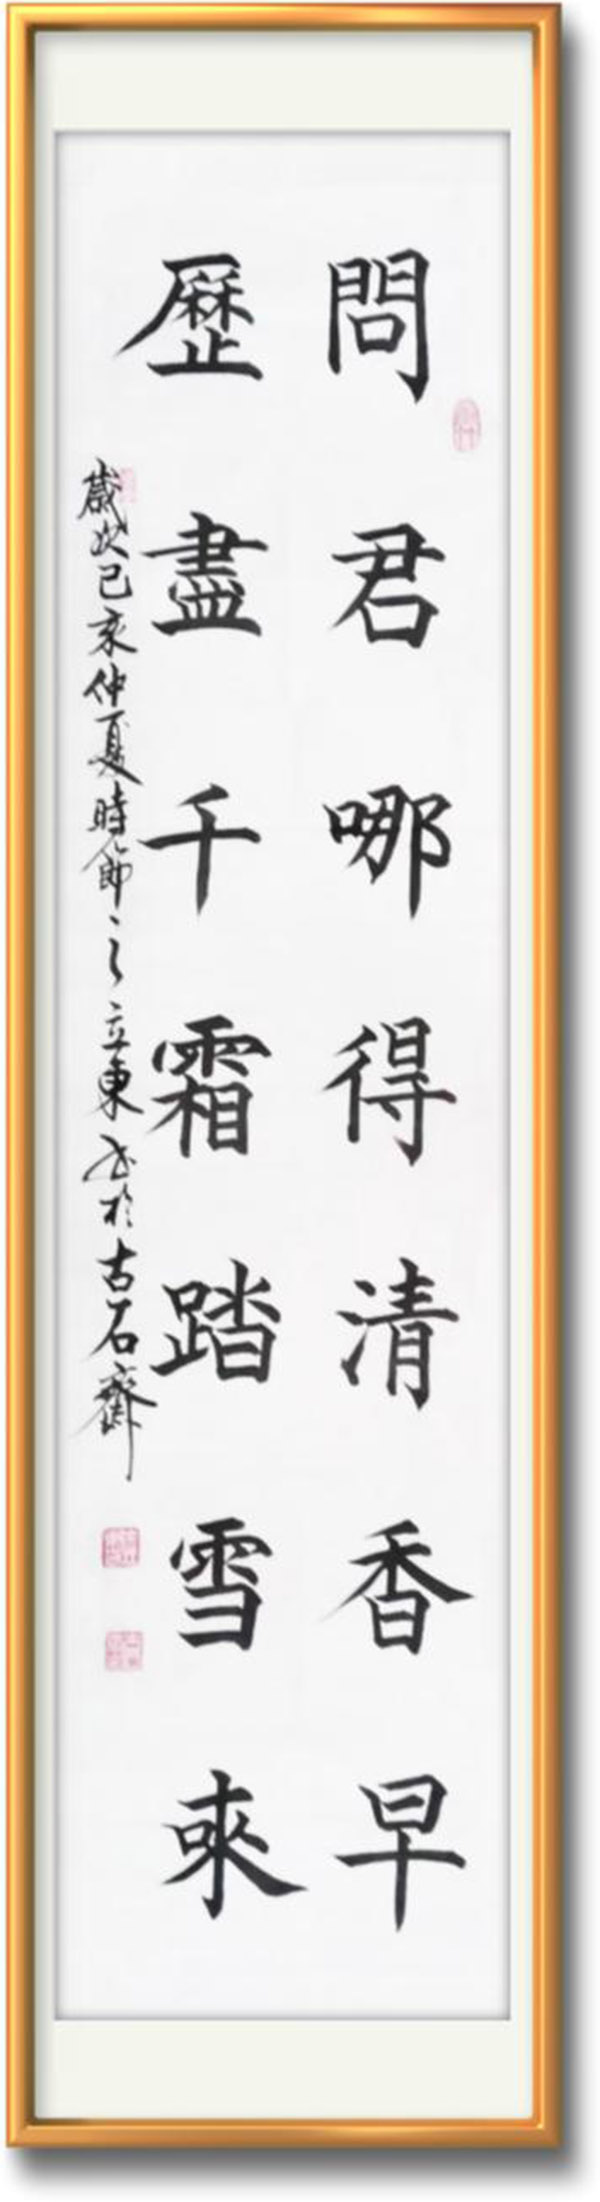 問君哪得清香早
歷盡千霜踏雪來
歲次己亥仲夏時節之立東書於古石齋